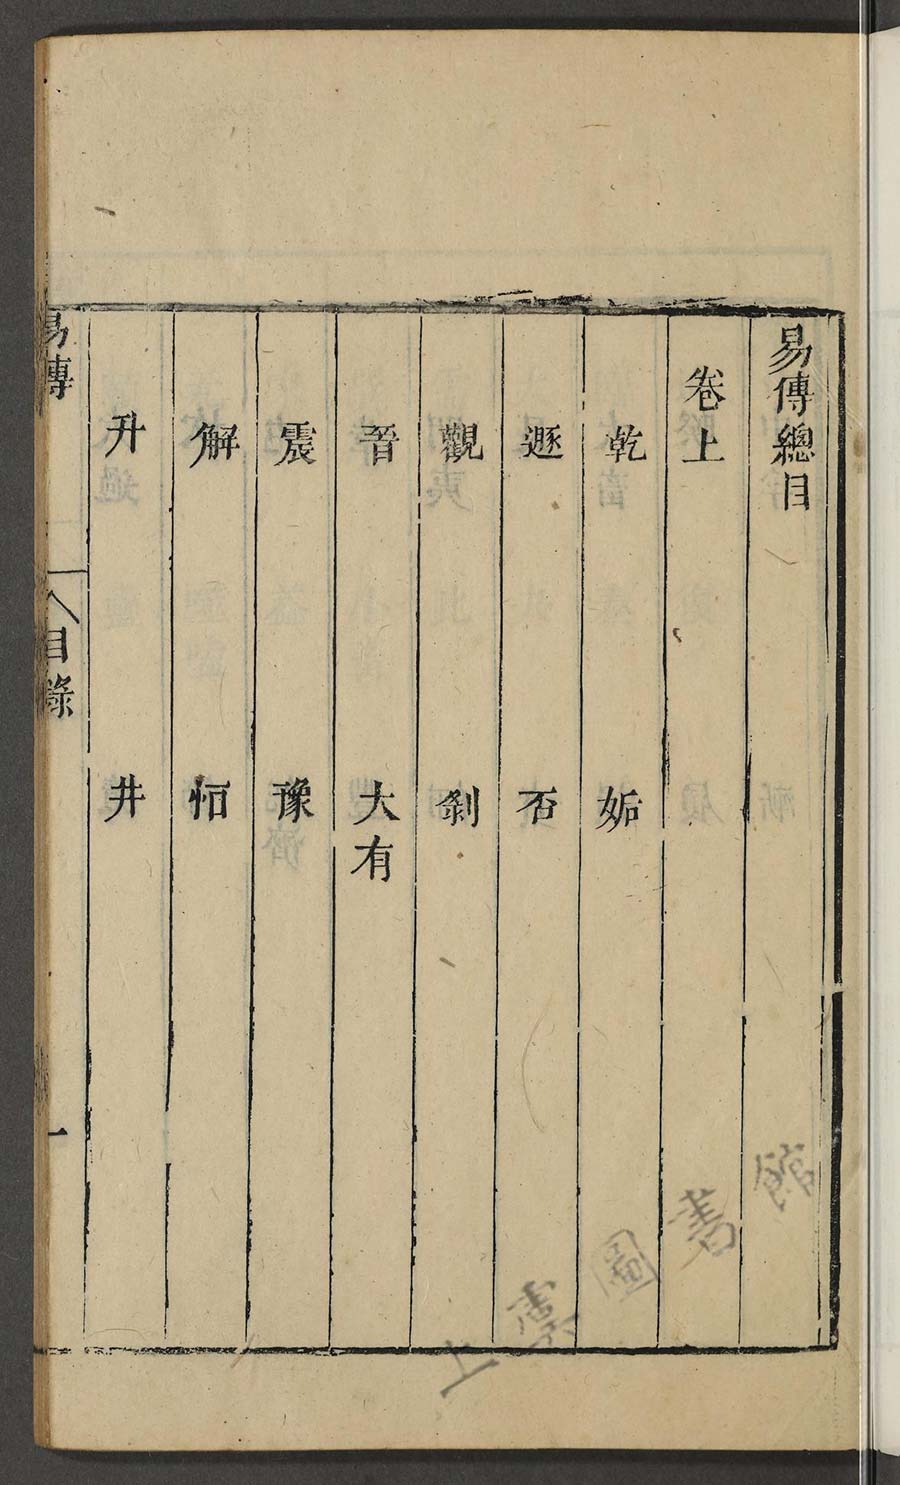 易傳總目
卷上
乾 姤
遯 否
觀 剝
晉 大有
震 豫
解 恒
升 井
易傳 目錄 一
上虞圖書館